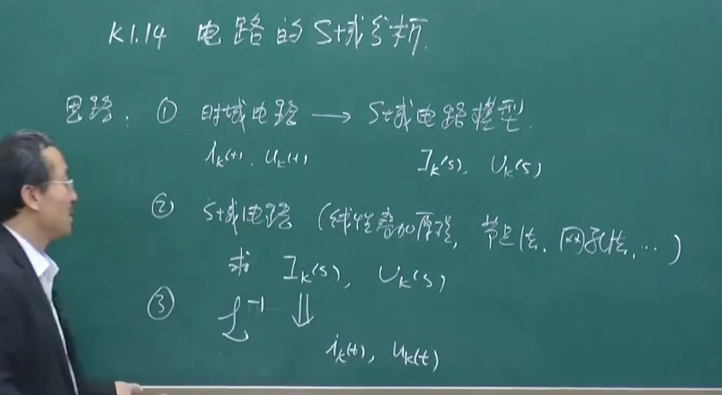 K1.14 电路的S域分析.
思路: ① 时域电路 → S域电路模型.
i_k(t), u_k(t) I_k(s), U_k(s)
② S域电路 (线性叠加原理, 节点法, 网孔法, …)
求 I_k(s), U_k(s)
③ ℒ⁻¹ ⇓
i_k(t), u_k(t)